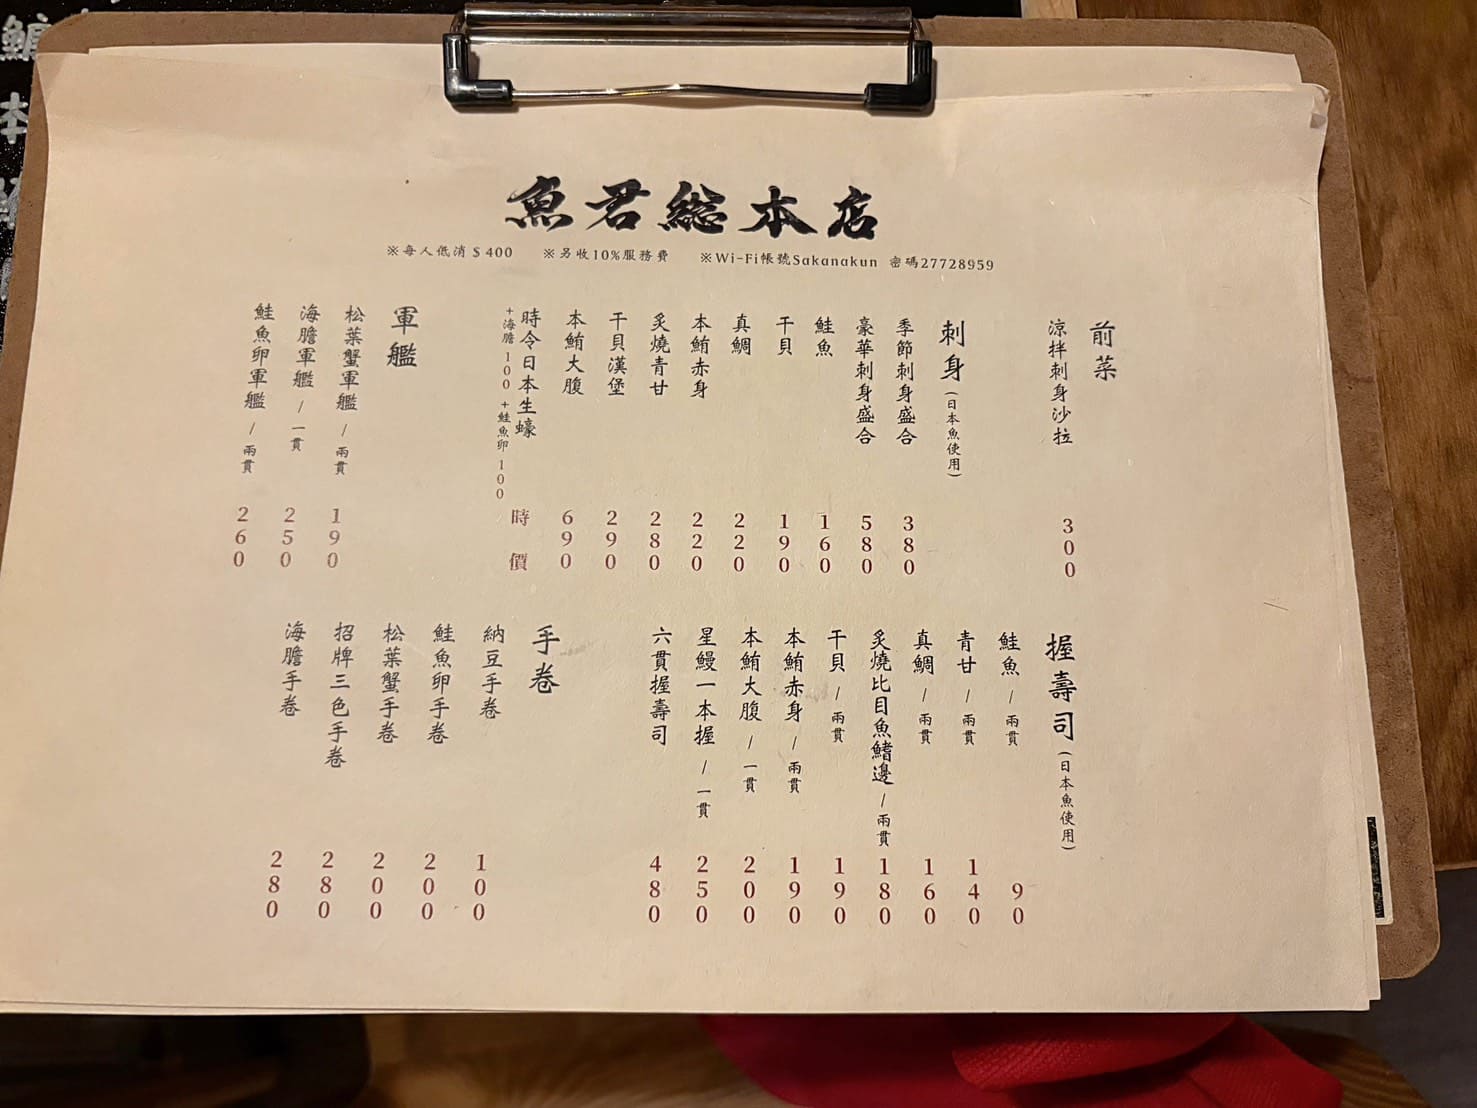 魚君総本店
※每人低消＄400 ※另收10%服務費 ※Wi-Fi帳號Sakanakun 密碼27728959
前菜
涼拌刺身沙拉 300
刺身(日本魚使用)
季節刺身盛合 380
豪華刺身盛合 580
鮭魚 160
干貝 190
真鯛 220
本鮪赤身 220
炙燒青甘 280
干貝漢堡 290
本鮪大腹 690
時令日本生蠔 時價
+海膽100+鮭魚卵100
軍艦
松葉蟹軍艦/兩貫 190
海膽軍艦/一貫 250
鮭魚卵軍艦/兩貫 260
握壽司(日本魚使用)
鮭魚/兩貫 90
青甘/兩貫 140
真鯛/兩貫 160
炙燒比目魚鰭邊/兩貫 180
干貝/兩貫 190
本鮪赤身/兩貫 190
本鮪大腹/一貫 200
星鰻一本握/一貫 250
六貫握壽司 480
手卷
納豆手卷 100
鮭魚卵手卷 200
松葉蟹手卷 200
招牌三色手卷 280
海膽手卷 280
本